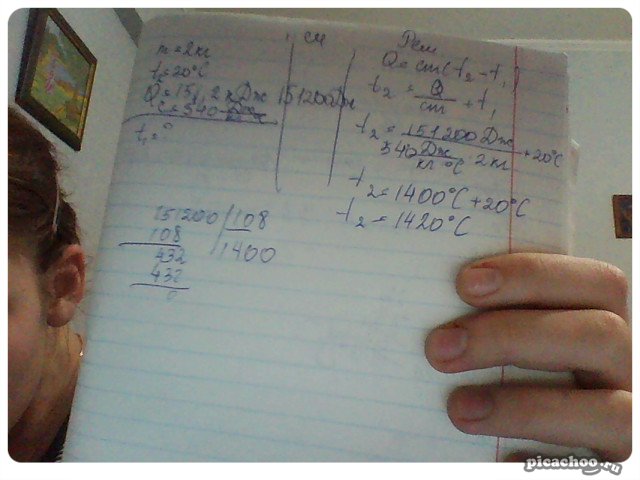 m = 2кг
t₁ = 20°C
Q = 151,2 кДж 151200Дж
c = 540 Дж/кг °C
t₂ = ?
си
Реш
Q = cm(t₂ - t₁)
t₂ = Q/cm + t₁
t₂ = 151200 Дж / 540 Дж/кг °C 2кг + 20°C
t₂ = 1400°C + 20°C
t₂ = 1420°C
151200 108
108 1400
432
432
0
picachoo.ru